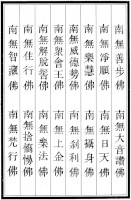 南無善步佛 南無大音讚佛
南無淨願佛 南無日天佛
南無樂慧佛 南無攝身佛
南無威德勢佛 南無刹利佛
南無眾會王佛 南無上金佛
南無解脫髻佛 南無樂法佛
南無住行佛 南無捨憍慢佛
南無智藏佛 南無梵行佛